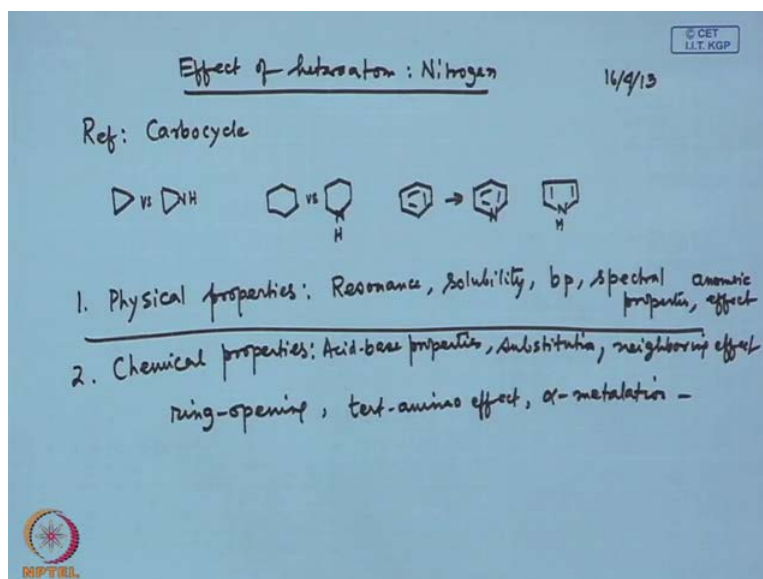 © CET
I.I.T. KGP
Effect of hetroatom : Nitrogen
16/9/13
Ref: Carbocycle
vs NH vs N H → N N H
1. Physical properties: Resonance, solubility, bp, spectral anomeric
properties, effect
2. Chemical properties: Acid-base properties, substitution, neighboring effect
ring-opening, tert-amino effect, α-metalation -
NPTEL